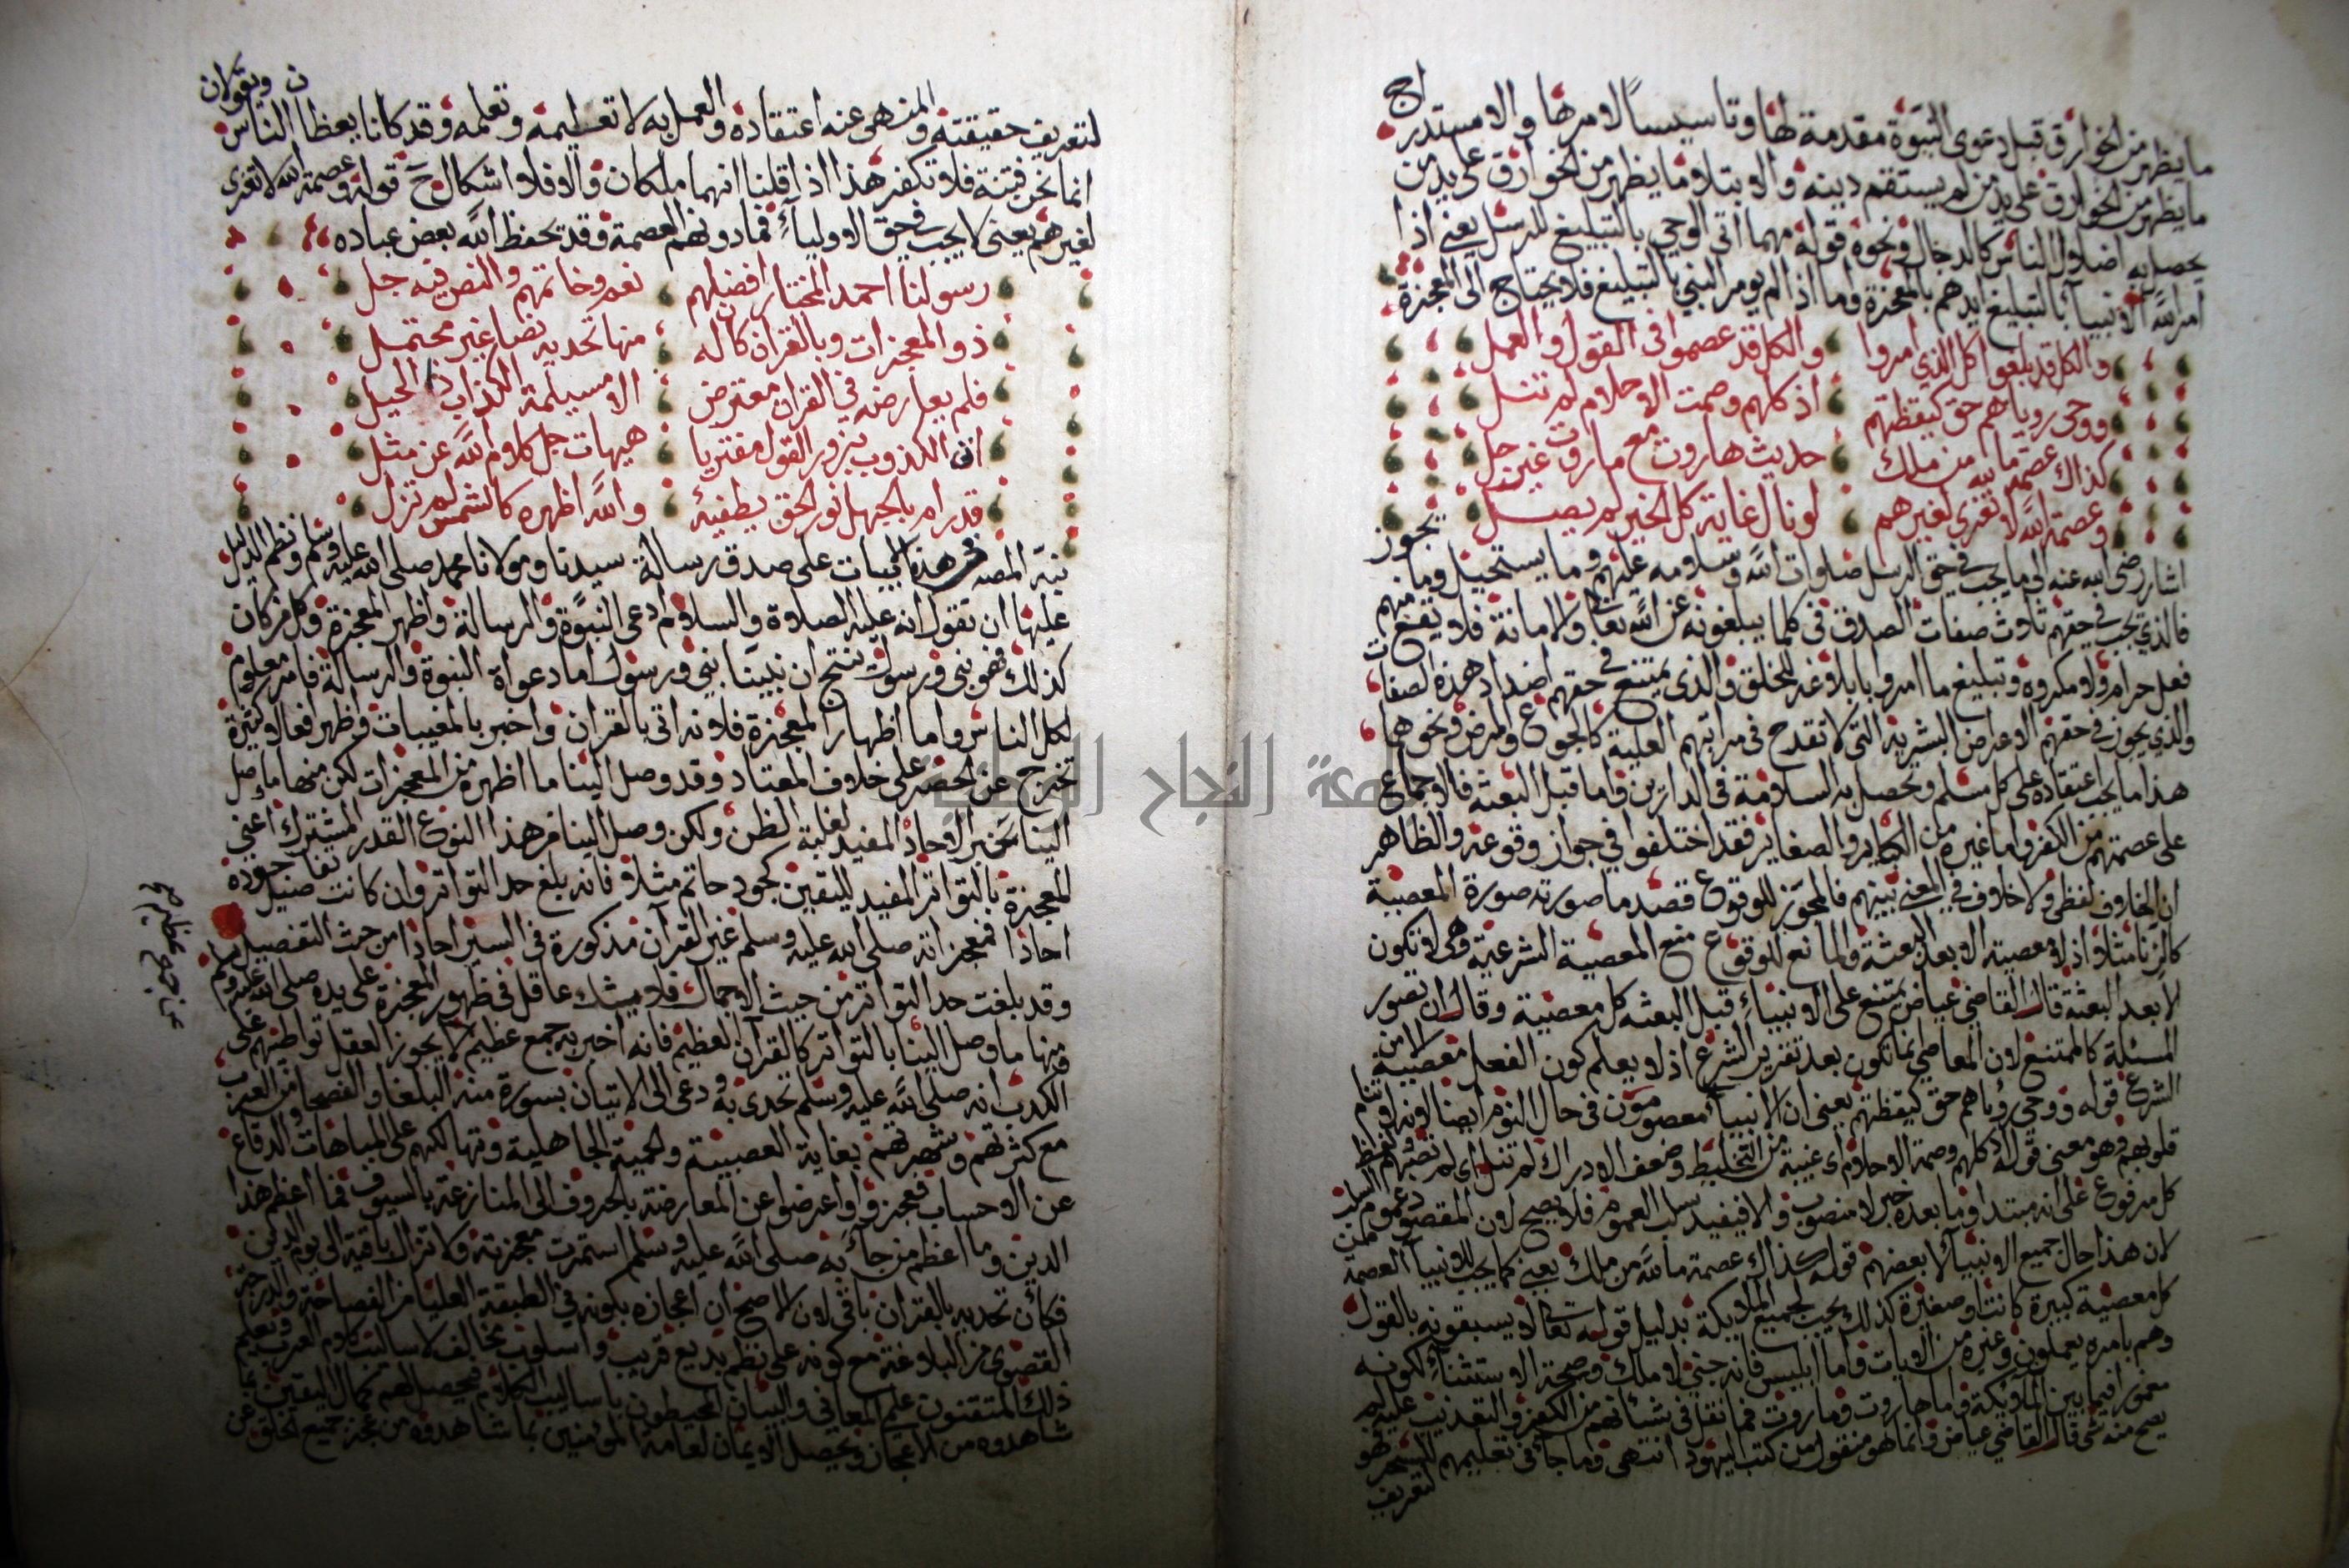 ما يظهر من الخوارق قبل دعوى النبوة مقدمة لها وتاسيسا لامرها والاستدراج
ما يظهر من الخوارق على يد من لم يستقم دينه والابتلا وما يظهر من الخوارق على يد من
يحصل به اضلال الناس كالدجال ونحوه قوله مهما اتى الوحي بالتبليغ للرسل يعني اذا
امر الله الانبياء بالتبليغ ايدهم بالمعجزة واما اذا لم يومر النبي بالتبليغ فلا يحتاج الى المعجزة
والكل قد بلغوا كل الذي امروا والكل قد عصموا في القول والعمل
ووحى روياهم حق كيقظتهم اذ كلهم وصمت الاحلام لم تنل
كذاك عصمة ما لله من ملك حديث هاروت مع ماروت غير جل
وعصمة الله لا تعزى لغيرهم لو نال غاية كل الخير لم يصل
اشار رضي الله عنه الى ما يجب في حق الرسل صلوات الله وسلامه عليهم وما يستحيل وما يجوز
فالذي يجب في حقهم ثلاث صفات الصدق في كلما يبلغونه عن الله تعالى والامانة فلا يقع منهم
فعل حرام ولا مكروه وتبليغ ما امروا بابلاغه للخلق والذي يمتنع في حقهم اضداد هذه الصفات
والذي يجوز في حقهم الاعراض البشرية التي لا تقدح في مراتبهم العلية كالجوع والمرض ونحوهما
هذا ما يجب اعتقاده على كل مسلم ويحصل به السلامة في الدارين واما قبل البعثة فالاجماع
على عصمتهم من الكفر واما غيره من الكباير والصغاير فقد اختلفوا في جواز وقوعه والظاهر
ان الخلاف لفظي ولا خلاف في المعنى بينهم فالمجوز للوقوع قصد ما صورته صورة المعصية
كالزنا مثلا اذ لا معصية الا بعد البعثة والمانع للوقوع منع المعصية الشرعية وهي لا تكون
الا بعد البعثة قال القاضي عياض يمتنع على الانبياء قبل البعثه كل معصية وقال ان تصور
المسئلة كالممتنع لان المعاصي انما تكون بعد تقرير الشرع اذ لا يعلم كون الفعل معصية الا من
الشرع قوله ووحي روياهم حق كيقظتهم يعني ان الانبياء معصومون في حال النوم ايضا لانه لا تنام
قلوبهم وهو معنى قوله اذ كلهم وصمة الاحلام اي عيبه من التخليط وضعف الادراك لم تنل اي لم تصبهم ولفظ
كل مرفوع على انه مبتدا وما بعده خبر لا منصوب والا فيفيد سلب العموم فلا يصح لان المقصود عموم السلب
لان هذا حال جميع الانبياء لا بعضهم قوله كذاك عصمة ما لله من ملك يعني كما يجب للانبياء العصمة من
كل معصية كبيرة كانت او صغيرة كذلك يجب لجميع الملايكة بدليل قوله تعالى لا يسبقونه بالقول
وهم بامره يعملون وغيره من الايات واما ابليس فانه جني لا ملك وصحة الاستثناء لكونه
مغمورا فيما بين الملايكة واما هاروت وماروت فما نقل في شيانهم من الكفر والتعذيب عليه لم
يصح منه شي قال القاضي عياض وانما هو منقول من كتب اليهود انتهى وما جاء في تعليمهم السحر هو
لتعريف
لتعريف حقيقته والمنهى عنه اعتقاده والعمل به لا تعليمه وتعلمه وقد كانا يعظان الناس ويقولان
انما نحن فتنة فلا تكفر هذا اذا قلنا انهما ملكان والا فلا اشكال ح قوله وعصمة الله لا تعزى
لغيرهم يعني لا يجب في حق الاولياء فما دونهم العصمة وقد يحفظ الله بعض عباده
رسولنا احمد المختار افضلهم نعم وخاتمهم والنص فيه جل
ذو المعجزات وبالقران كان له منها تحديه نصا غير محتمل
فلم يعارضه في القران معترض الا مسيلمة الكذاب ذا الحيل
اتى الكذوب بزور القول مفتريا هيهات جل كلام الله عن مثل
قد رام بالجهل نور الحق يطفيه والله اظهره كالشمس لم تزل
نبه المص في هذه الابيات على صدق رسالة سيدنا ومولانا محمد صلى الله عليه وسلم ونظم الدليل
عليها ان تقول انه عليه الصلاة والسلام ادعى النبوة والرسالة واظهر المعجزة وكل من كان
كذلك فهو نبي ورسول ينتج ان نبينا نبي ورسول اما دعواه النبوة والرسالة فامر معلوم
لكل الناس واما اظهار المعجزة فلانه اتى بالقران واخبر بالمغيبات واظهر افعالا كثيرة
تخرج عن الحصر على خلاف المعتاد وقد وصل الينا ما اظهره من المعجزات لكن منها ما وصل
الينا بخبر الاحاد المفيد لغلبة الظن ولكن وصل الينا من هذا النوع القدر المشترك اعني
المعجزة بالتواتر المفيد لليقين كجود حاتم مثلا فانه بلغ حد التواتر وان كانت تفاصيل جوده
احادا فمعجزاته صلى الله عليه وسلم غير القرآن مذكورة في السير احادا من حيث التفصيل
وقد بلغت حد التواتر من حيث الاجمال فلا يشك عاقل في ظهور المعجزة على يده صلى الله عليه وسلم
ومنها ما وصل الينا بالتواتر كالقرآن العظيم فانه اخبر به جمع عظيم لا يجوز العقل تواطئهم على
الكذب انه صلى الله عليه وسلم تحدى به ودعى الى الاتيان بسورة منه البلغا والفصحا من العرب
مع كثرتهم وشهرتهم بغاية العصبية والحمية الجاهلية وتهالكهم على المباهات والدفاع
عن الاحساب فعجزوا واعرضوا عن المعارضة بالحروف الى المنازعة بالسيوف فما اعظم هذا
الدين وما اعظم من جاء به صلى الله عليه وسلم استمرت معجزته ولا تزال باقية الى يوم الدين
فكأن تحديه بالقران باقي لان الاصح ان اعجازه بكونه في الطبقة العليا من الفصاحة والدرجة
القصوى من البلاغة مع كونه على نظم بديع غريب واسلوب يخالف لاساليب كلام العرب ويعلم
ذلك المتقنون علم المعاني والبيان المحيطون باساليب الكلام فيحصل لهم كمال اليقين بما
شاهدوه من الاعجاز ويحصل الايمان لعامة المؤمنين بما شاهدوه من عجز جميع الخلق عن
عن جمع عظيم
جامعة النجاح الوطنية